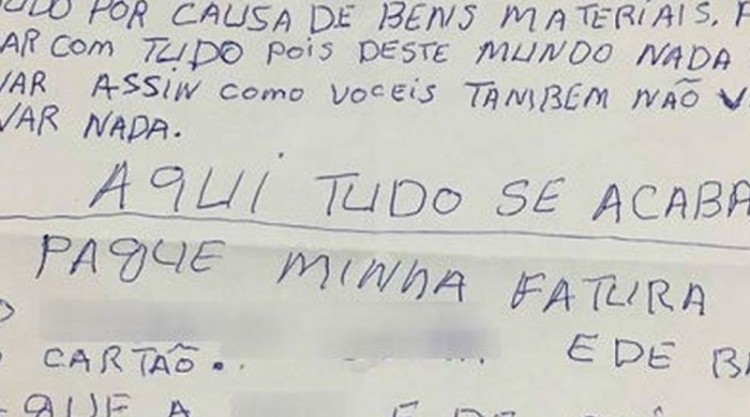 POR CAUSA DE BENS MATERIAIS.
COM TUDO POIS DESTE MUNDO NADA
ASSIN COMO VOCEIS TAMBEM NÃO
NADA.
AQUI TUDO SE ACABA
PAQUE MINHA FATURA
CARTÃO.
E DE
QUE A